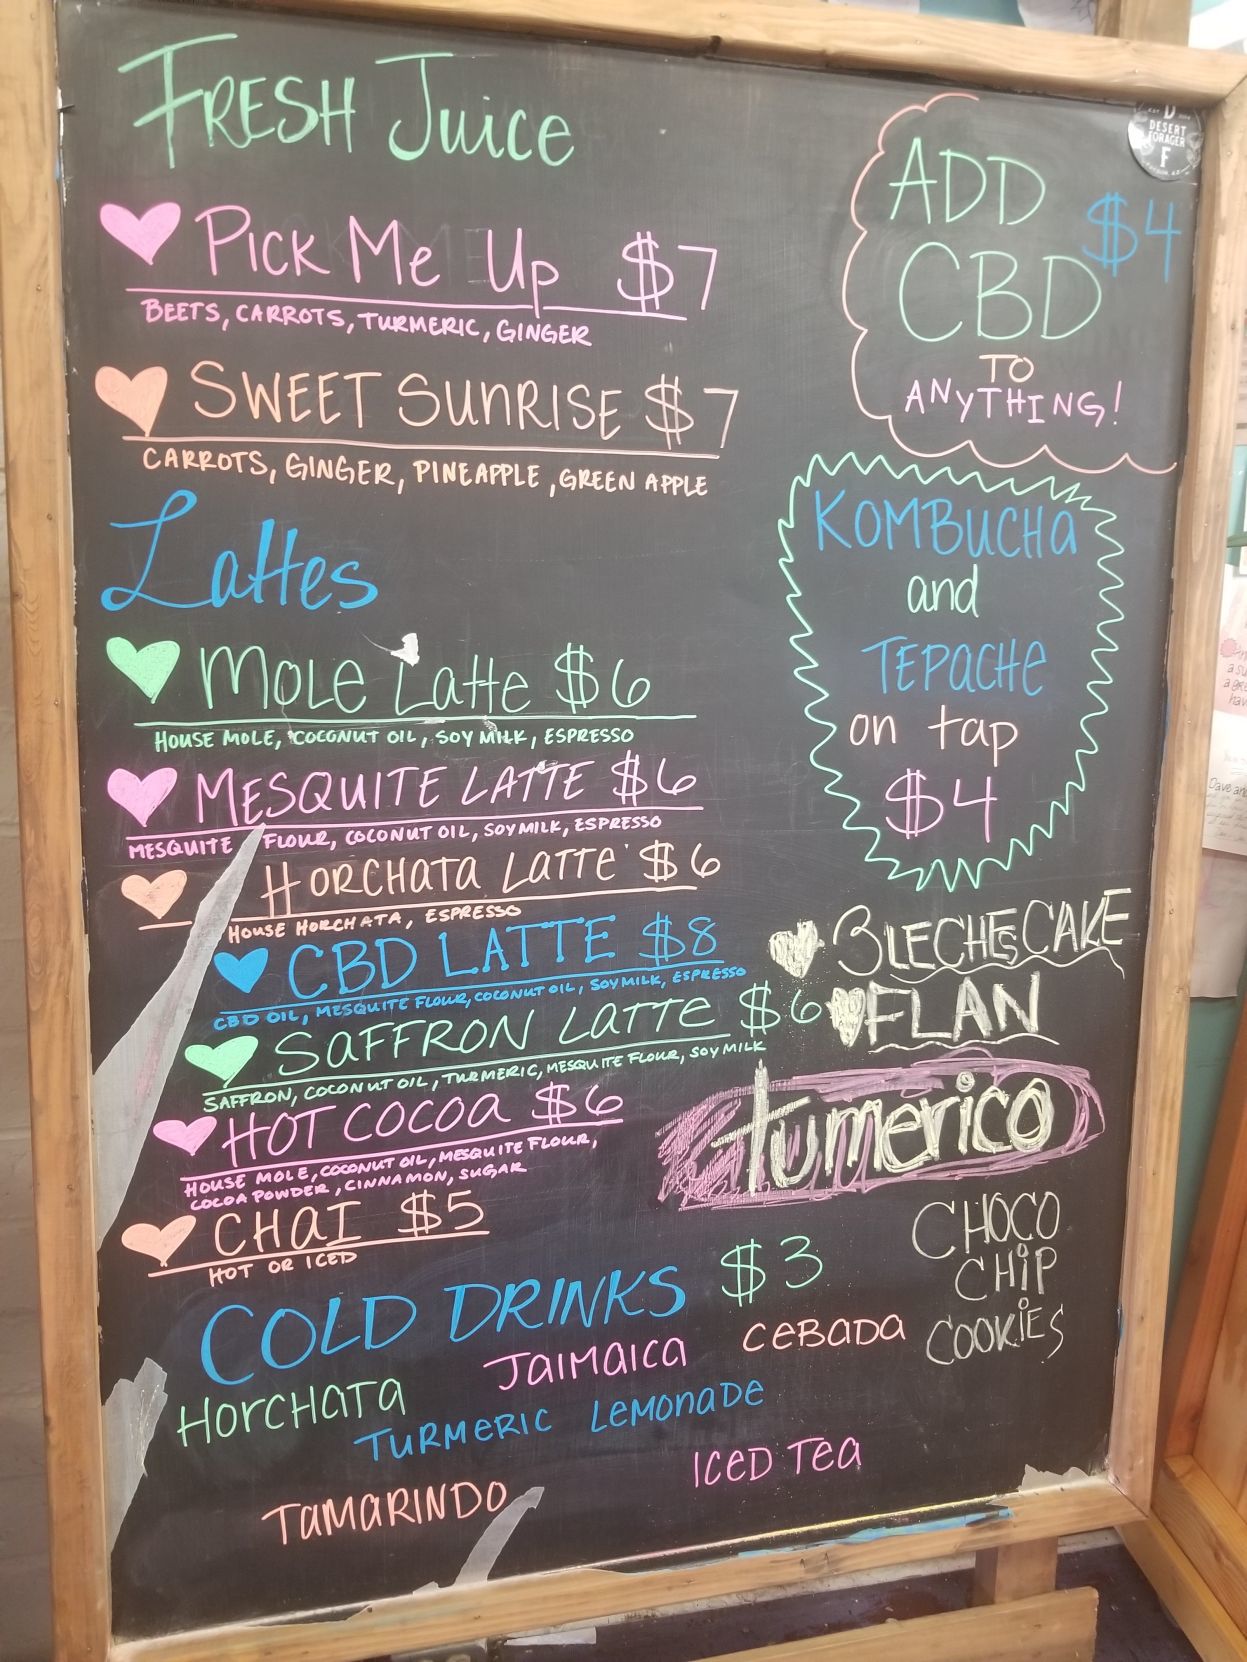 FRESH Juice
PICK ME Up $7
BEETS, CARROTS, TURMERIC, GINGER
SWEET SUNRISE $7
CARROTS, GINGER, PINEAPPLE, GREEN APPLE
Lattes
MOLE Latte $6
HOUSE MOLE, COCONUT OIL, SOY MILK, ESPRESSO
MESQUITE LATTE $6
MESQUITE FLOUR, COCONUT OIL, SOY MILK, ESPRESSO
HORCHATA LATTE $6
HOUSE HORCHATA, ESPRESSO
CBD LATTE $8
CBD OIL, MESQUITE FLOUR, COCONUT OIL, SOY MILK, ESPRESSO
SAFFRON LATTE $6
SAFFRON, COCONUT OIL, TURMERIC, MESQUITE FLOUR, SOY MILK
HOT COCOA $6
HOUSE MOLE, COCONUT OIL, MESQUITE FLOUR,
COCOA POWDER, CINNAMON, SUGAR
CHAI $5
HOT OR ICED
COLD DRINKS $3
JAIMAICA CEBADA
HORCHATA
TURMERIC LEMONADE
ICED TEA
TAMARINDO
ADD $4
CBD
TO
ANYTHING!
DESERT
FORAGER
F
KOMBUCHA
and
TEPACHE
on tap
$4
3LECHES CAKE
FLAN
tumerico
CHOCO
CHIP
COOKIES